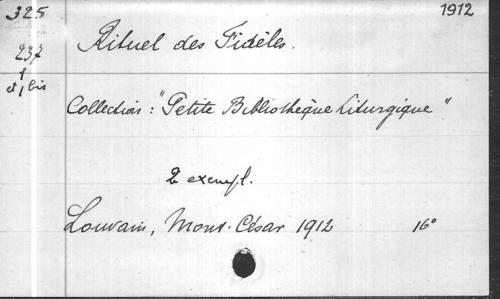 325
1912
237
1
et 1 bis
Rituel des Fidèles.
Collection: "Petite Bibliothèque Liturgique"
2 exempl.
Louvain, Mont-César 1912 16°